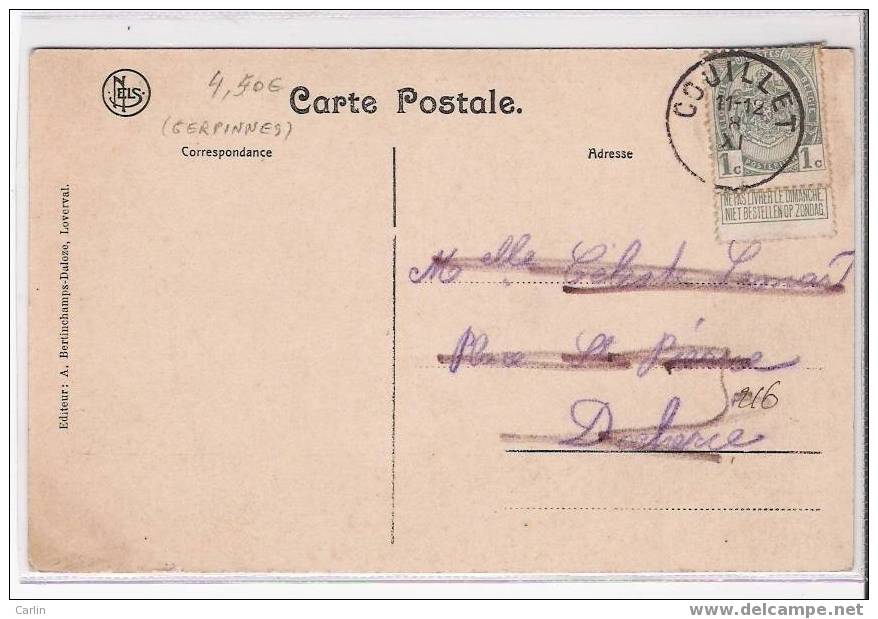 NELS
4,50€
(GERPINNES)
Carte Postale.
Correspondance
Adresse
COUILLET
11-12
8
XI
POSTES
BELGIQUE
1c 1c
NE PAS LIVRER LE DIMANCHE
NIET BESTELLEN OP ZONDAG
Editeur: A. Bertinchamps-Daloze, Loverval.
Melle Céleste
Place St Pierre
216
Carlin
www.delcampe.net